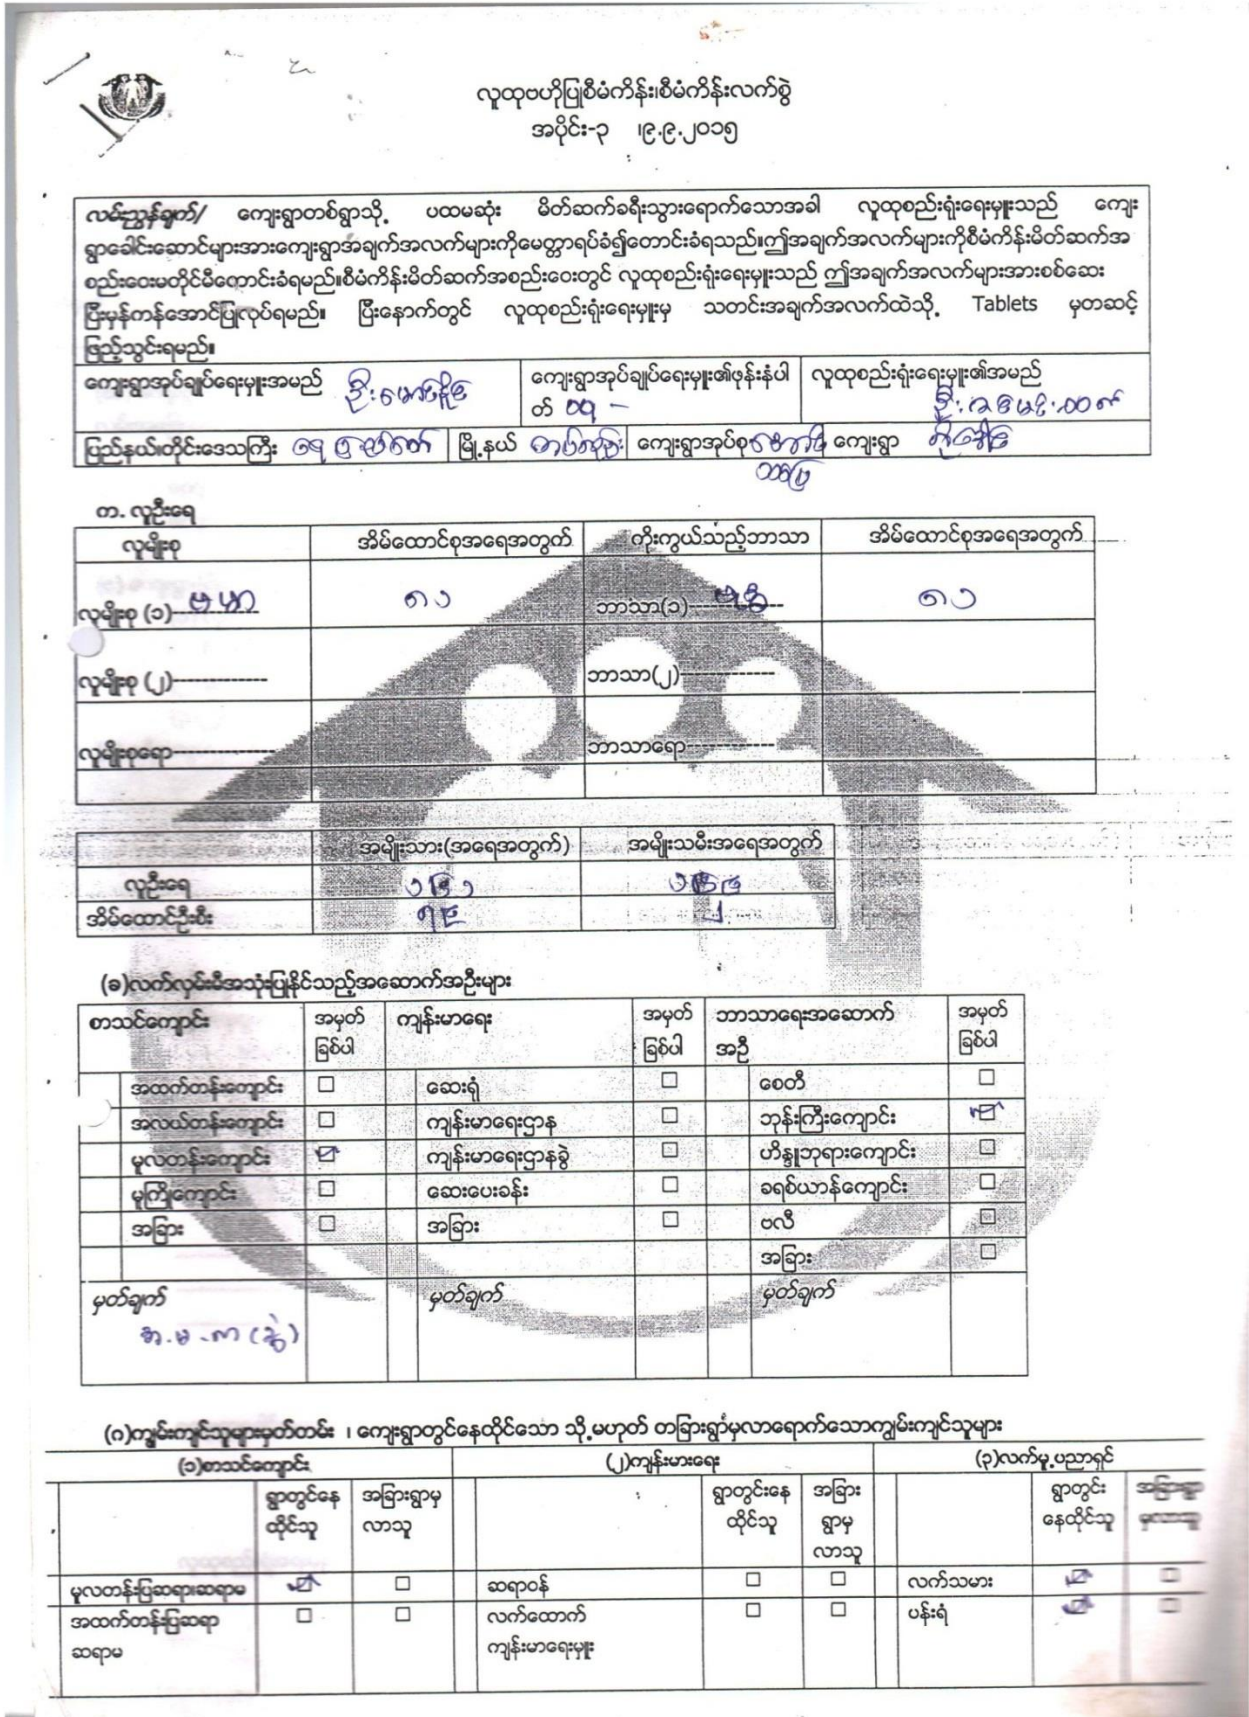 လူထုဗဟိုပြုစီမံကိန်း၊စီမံကိန်းလက်စွဲ
အပိုင်း-၃ ၊၉.၉.၂၀၁၅
လမ်းညွှန်ချက်/ ကျေးရွာတစ်ရွာသို့ ပထမဆုံး မိတ်ဆက်ခရီးသွားရောက်သောအခါ လူထုစည်းရုံးရေးမှူးသည် ကျေး
ရွာခေါင်းဆောင်များအားကျေးရွာအချက်အလက်များကိုမေတ္တာရပ်ခံ၍တောင်းခံရသည်။ဤအချက်အလက်များကိုစီမံကိန်းမိတ်ဆက်အ
စည်းဝေးမတိုင်မီတောင်းခံရမည်။စီမံကိန်းမိတ်ဆက်အစည်းဝေးတွင် လူထုစည်းရုံးရေးမှူးသည် ဤအချက်အလက်များအားစစ်ဆေး
ပြီးမှန်ကန်အောင်ပြုလုပ်ရမည်။ ပြီးနောက်တွင် လူထုစည်းရုံးရေးမှူးမှ သတင်းအချက်အလက်ထဲသို့ Tablets မှတဆင့်
ဖြည့်သွင်းရမည်။
ကျေးရွာအုပ်ချုပ်ရေးမှူးအမည် ကျေးရွာအုပ်ချုပ်ရေးမှူး၏ဖုန်းနံပါ လူထုစည်းရုံးရေးမှူး၏အမည်
တ် ၀၅ -
ပြည်နယ်၊တိုင်းဒေသကြီး မြို့နယ် ကျေးရွာအုပ်စု ကျေးရွာ
က. လူဦးရေ
လူမျိုးစု အိမ်ထောင်စုအရေအတွက် ကိုးကွယ်သည့်ဘာသာ အိမ်ထောင်စုအရေအတွက်
လူမျိုးစု (၁) ဗမာ ၈၁ ဘာသာ(၁) ဗုဒ္ဓ ၈၁
လူမျိုးစု (၂) ဘာသာ(၂)
လူမျိုးစုရော ဘာသာရော
အမျိုးသား(အရေအတွက်) အမျိုးသမီးအရေအတွက်
လူဦးရေ
အိမ်ထောင်ဦးစီး
(ခ)လက်လှမ်းမီအသုံးပြုနိုင်သည့်အဆောက်အဦးများ
စာသင်ကျောင်း အမှတ် ကျန်းမာရေး အမှတ် ဘာသာရေးအဆောက် အမှတ်
ခြစ်ပါ ခြစ်ပါ အဦ ခြစ်ပါ
အထက်တန်းကျောင်း ☐ ဆေးရုံ ☐ စေတီ ☐
အလယ်တန်းကျောင်း ☐ ကျန်းမာရေးဌာန ☐ ဘုန်းကြီးကျောင်း ☑
မူလတန်းကျောင်း ☑ ကျန်းမာရေးဌာနခွဲ ☐ ဟိန္ဒူဘုရားကျောင်း ☐
မူကြိုကျောင်း ☐ ဆေးပေးခန်း ☐ ခရစ်ယာန်ကျောင်း ☐
အခြား ☐ အခြား ☐ ဗလီ ☐
အခြား ☐
မှတ်ချက် မှတ်ချက် မှတ်ချက်
အ.မ.က (ခွဲ)
(ဂ)ကျွမ်းကျင်သူများမှတ်တမ်း ၊ ကျေးရွာတွင်နေထိုင်သော သို့မဟုတ် တခြားရွာမှလာရောက်သောကျွမ်းကျင်သူများ
(၁)စာသင်ကျောင်း (၂)ကျန်းမားရေး (၃)လက်မှု့ပညာရှင်
ရွာတွင်နေ အခြားရွာမှ ရွာတွင်းနေ အခြား ရွာတွင်း အခြားရွာ
ထိုင်သူ လာသူ ထိုင်သူ ရွာမှ နေထိုင်သူ မှလာသူ
လာသူ
မူလတန်းပြဆရာ၊ဆရာမ ☑ ☐ ဆရာဝန် ☐ ☐ လက်သမား ☑ ☐
အထက်တန်းပြဆရာ ☐ ☐ လက်ထောက် ☐ ☐ ပန်းရံ ☑ ☐
ဆရာမ ကျန်းမာရေးမှူး